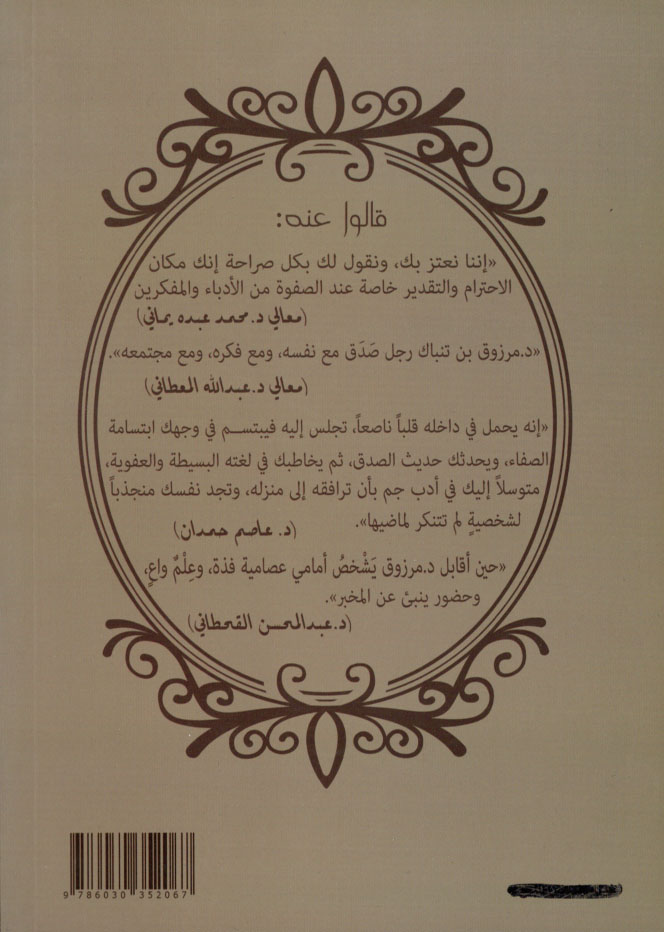 قالوا عنه:
«إننا نعتز بك، ونقول لك بكل صراحة إنك مكان
الاحترام والتقدير خاصة عند الصفوة من الأدباء والمفكرين
(معالي د.محمد عبده يماني)
«د.مرزوق بن تنباك رجل صَدَق مع نفسه، ومع فكره، ومع مجتمعه».
(معالي د.عبدالله المعطاني)
«إنه يحمل في داخله قلباً ناصعاً، تجلس إليه فيبتسم في وجهك ابتسامة
الصفاء، ويحدثك حديث الصدق، ثم يخاطبك في لغته البسيطة والعفوية،
متوسلاً إليك في أدب جم بأن ترافقه إلى منزله، وتجد نفسك منجذباً
لشخصيةٍ لم تتنكر لماضيها».
(د. عاصم حمدان)
«حين أقابل د.مرزوق يَشْخصُ أمامي عصامية فذة، وعِلْمٌ واعٍ،
وحضور ينبئ عن المخبر».
(د.عبدالمحسن القحطاني)
9 786030 352067